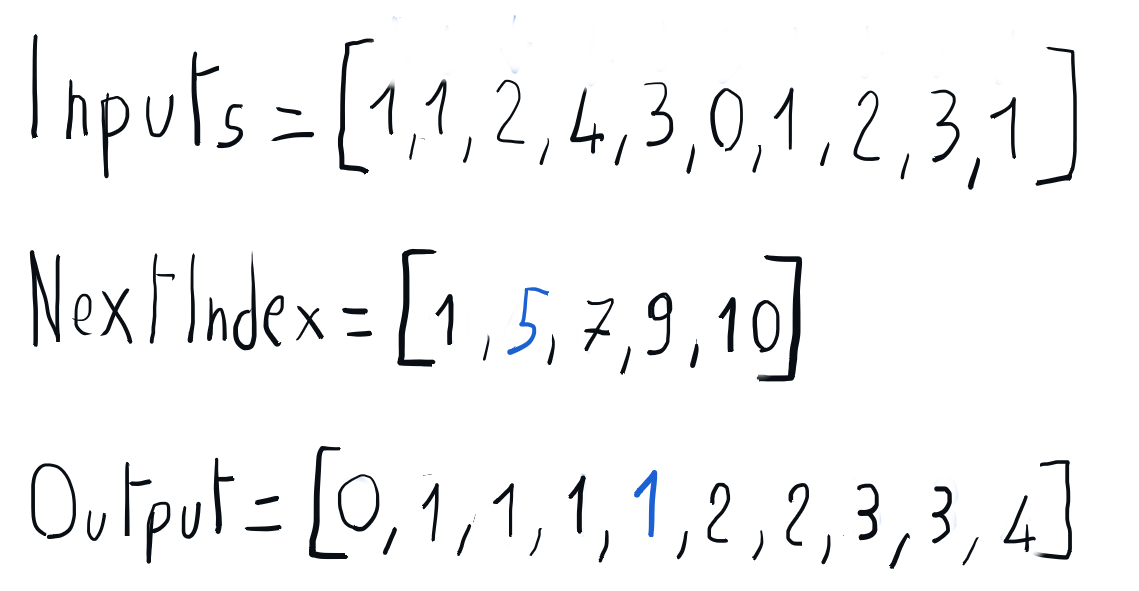 Inputs = [1, 1, 2, 4, 3, 0, 1, 2, 3, 1]
NextIndex = [1, 5, 7, 9, 10]
Output = [0, 1, 1, 1, 1, 2, 2, 3, 3, 4]